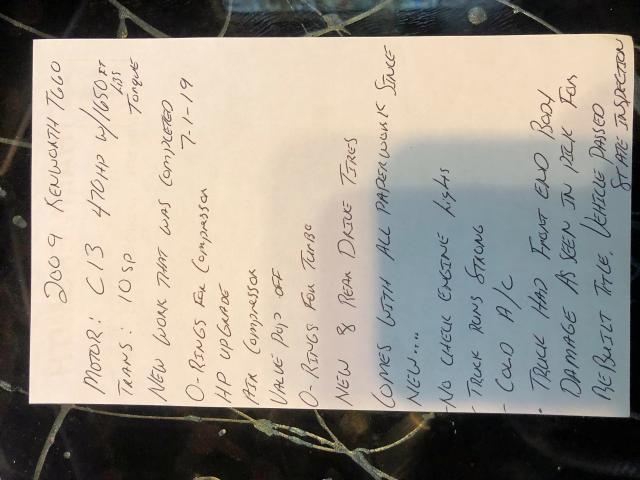 2009 KENWORTH T660
MOTOR: C13 470HP W/1650 FT
LBS
TORQUE
TRANS: 10 SP
NEW WORK THAT WAS COMPLETED
7-1-19
O-RINGS FOR COMPRESSOR
HP UPGRADE
AIR COMPRESSOR
VALVE POP OFF
O-RINGS FOR TURBO
NEW 8 REAR DRIVE TIRES
COMES WITH ALL PAPERWORK SINCE
NEW....
-NO CHECK ENGINE LIGHTS
- TRUCK RUNS STRONG
- COLD A/C
- TRUCK HAD FRONT END BODY
DAMAGE AS SEEN IN PICK FOR
REBUILT TITLE. VEHICLE PASSED
STATE INSPECTION